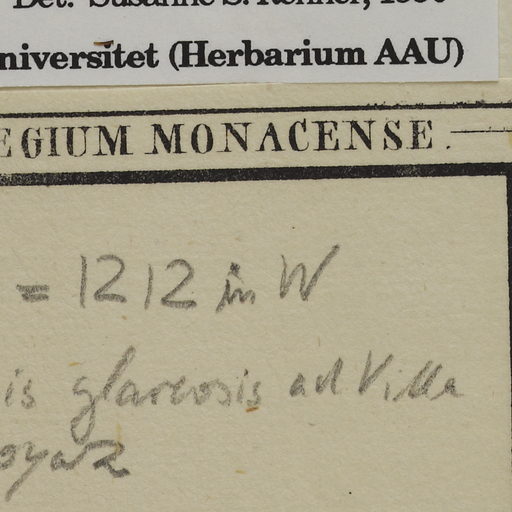 Det. Susanne S. Renner, 1990
niversitet (Herbarium AAU)
EGIUM MONACENSE.
= 1212 in W
is glareosis ad Villa
oyaz